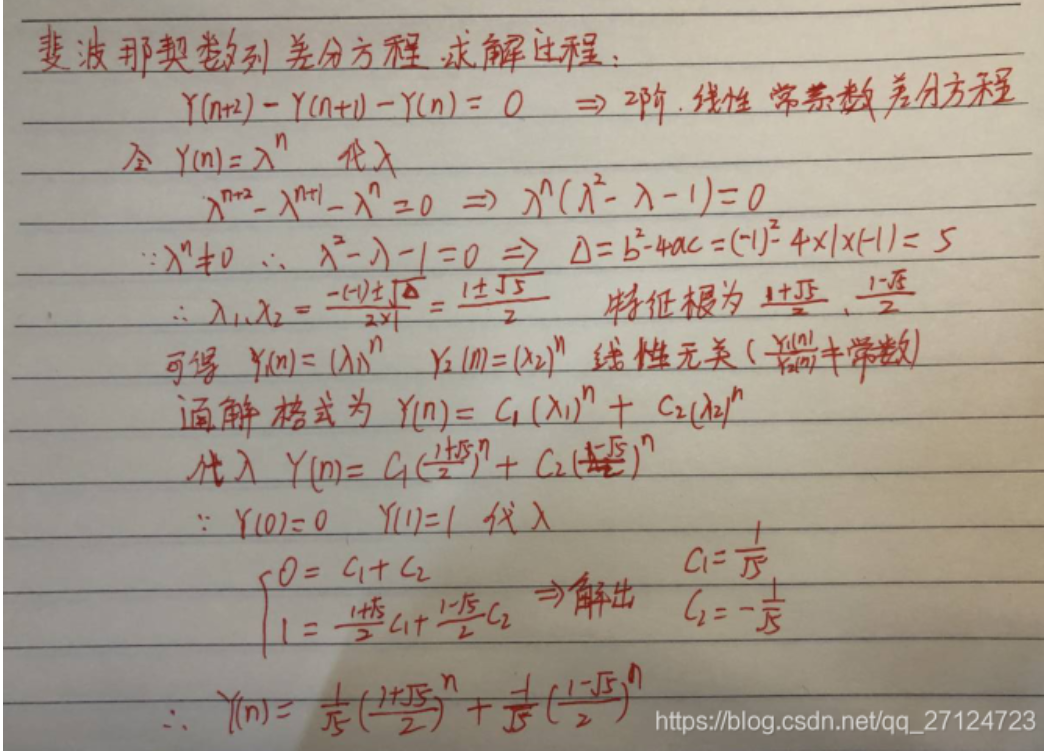 斐波那契数列差分方程求解过程:
Y(n+2) - Y(n+1) - Y(n) = 0 ⇒ 2阶.线性常系数差分方程
令 Y(n) = λⁿ 代入
λⁿ⁺² - λⁿ⁺¹ - λⁿ = 0 ⇒ λⁿ(λ² - λ - 1) = 0
∵ λⁿ ≠ 0 ∴ λ² - λ - 1 = 0 ⇒ Δ = b² - 4ac = (-1)² - 4×1×(-1) = 5
∴ λ₁、λ₂ = (-(-1)±√Δ)/(2×1) = (1±√5)/2 特征根为 (1+√5)/2 、(1-√5)/2
可得 Y₁(n) = (λ₁)ⁿ Y₂(n) = (λ₂)ⁿ 线性无关 (Y₁(n)/Y₂(n) ≠ 常数)
通解格式为 Y(n) = C₁(λ₁)ⁿ + C₂(λ₂)ⁿ
代入 Y(n) = C₁((1+√5)/2)ⁿ + C₂((1-√5)/2)ⁿ
∵ Y(0)=0 Y(1)=1 代入
{ 0 = C₁ + C₂
1 = (1+√5)/2 C₁ + (1-√5)/2 C₂ ⇒ 解出 C₁ = 1/√5
C₂ = -1/√5
∴ Y(n) = 1/√5 ((1+√5)/2)ⁿ + -1/√5 ((1-√5)/2)ⁿ
https://blog.csdn.net/qq_27124723